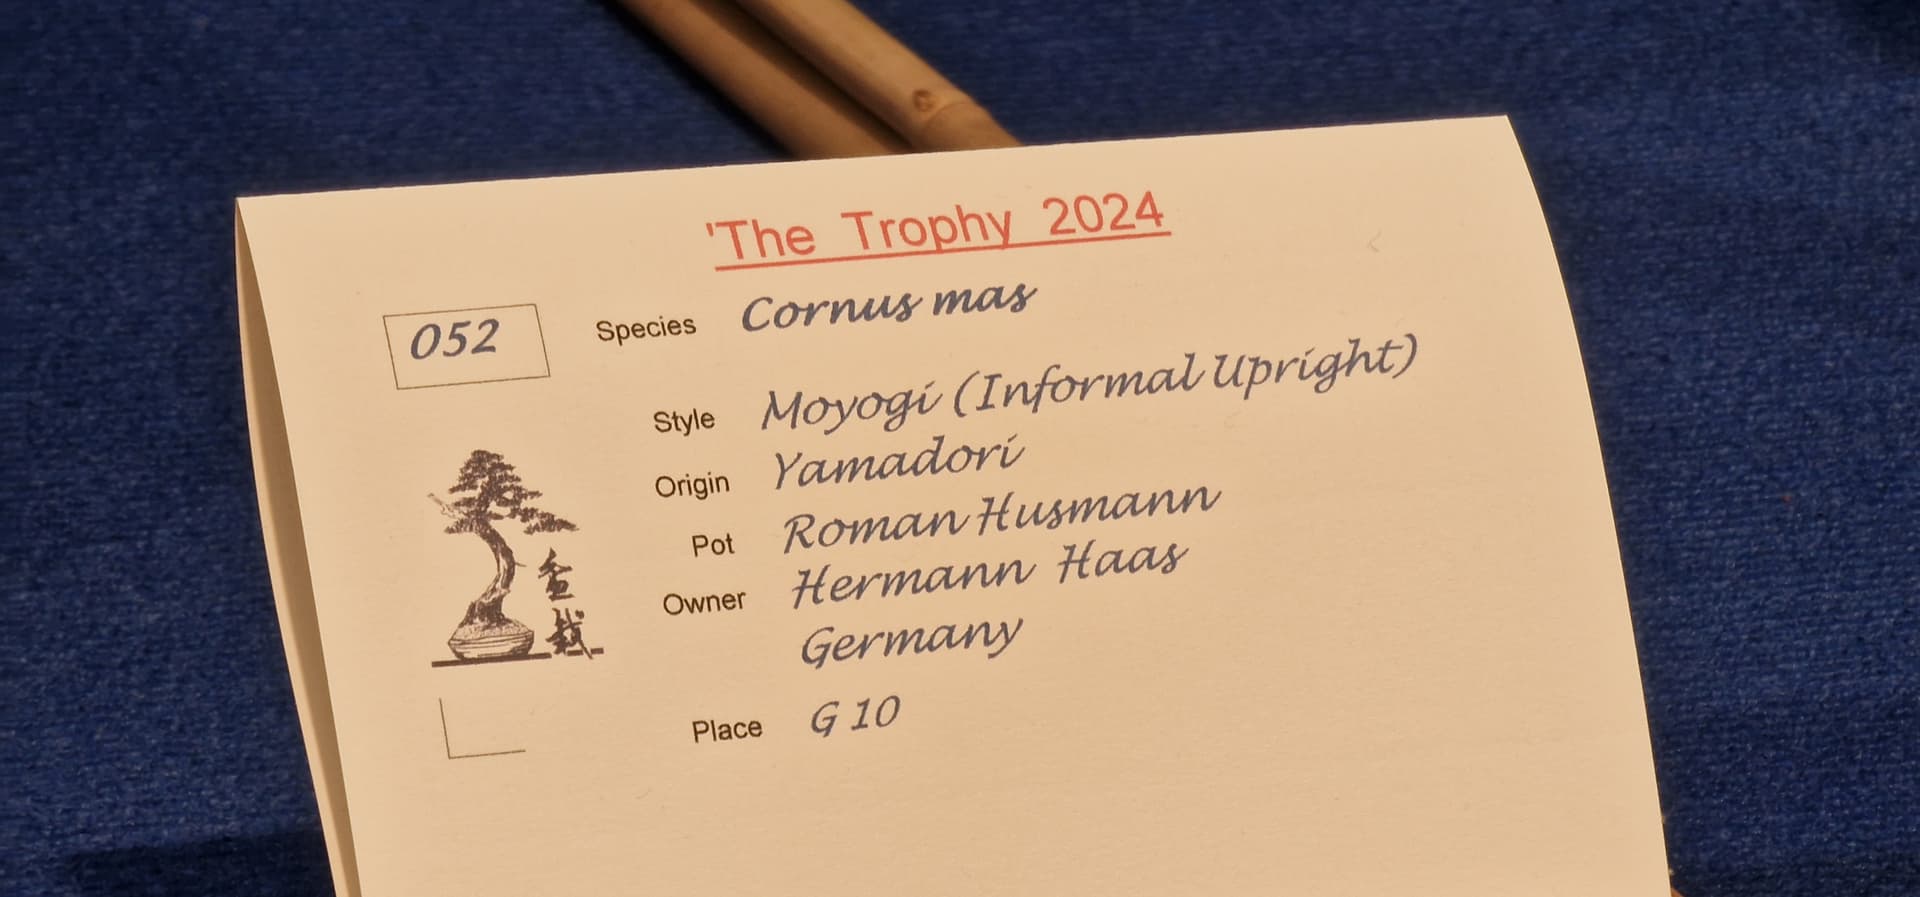 'The Trophy 2024
052
Species Cornus mas
Style Moyogi (Informal Upright)
Origin Yamadori
Pot Roman Husmann
Owner Hermann Haas
Germany
盆栽
Place G 10